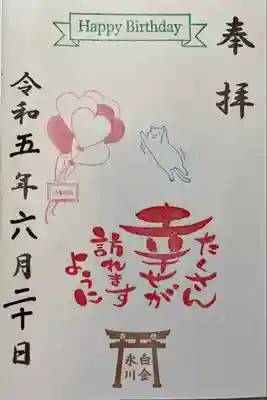 Happy Birthday
奉拝
たくさん
幸せが
訪れます
ように
令和五年六月二十日
白金
氷川